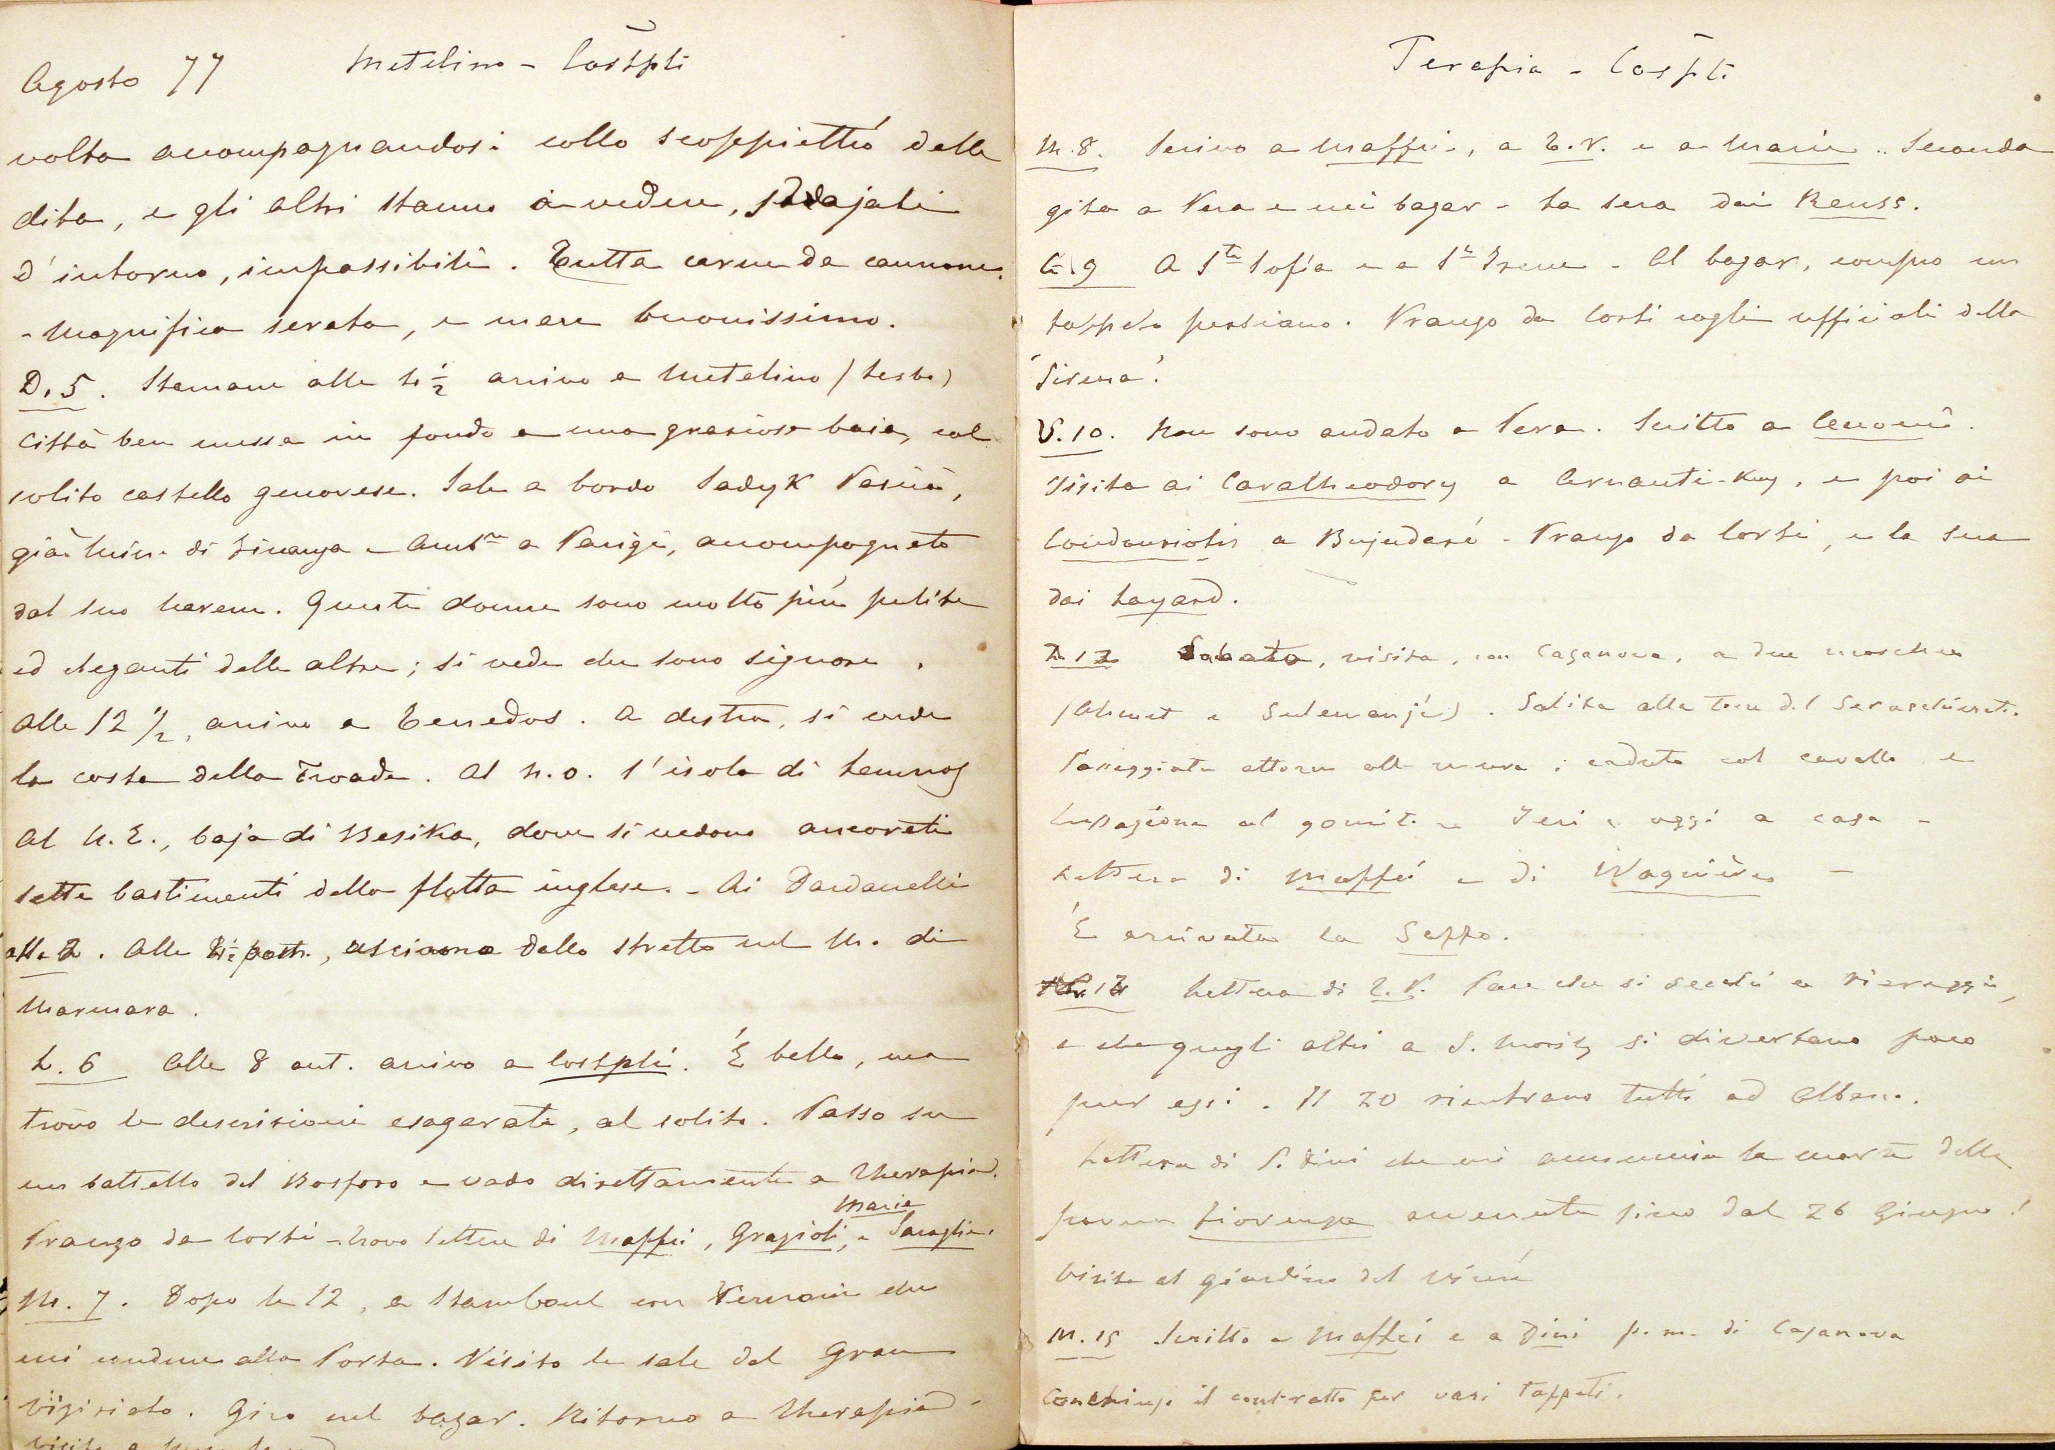 Agosto 77 Metelino - Costpli
volta accompagnandosi collo scoppiettío delle
dita, e gli altri stanno a vedere, sdrajati
d'intorno, impassibili. Tutta carne da cannone.
- Magnifica serata, e mare buonissimo.
D. 5. Stamane alle 6 1/2 arrivo a Metelino (Lesbo)
città ben messa in fondo a una graziosa baia, col
solito castello genovese. Sale a bordo Sadyk Pascià,
già Min. di Finanza e Ambre a Parigi, accompagnato
dal suo harem. Queste donne sono molto più pulite
ed eleganti delle altre; si vede che sono signore.
Alle 12 1/2, arrivo a Tenedos. A destra, si vede
la costa della Troade. Al N.O. l'isola di Lemnos
Al N.E., baja di Besika, dove si vedono ancorati
sette bastimenti della flotta inglese. - Ai Dardanelli
alle 2. Alle pom., usciamo dallo stretto nel M. di
Marmara.
L. 6 Alle 8 ant. arrivo a Costpli. È bello, ma
trovo le descrizioni esagerate, al solito. Passo su
un battello del Bosforo e vado direttamente a Therapia.
Marie
Pranzo da Corti - trovo lettere di Maffei, Grazioli, e
M. 7. Dopo le 12, a Stamboul con Vernoni che
mi conduce alla Porta. Visito le sale del Gran
vizirialo. Giro nel bazar. Ritorno a Therapia -
visita a
Terapia - Cospli
M. 8. Scrivo a Maffei, a E.V. e a Marie. Seconda
gita a Pera e nei bazar - La sera dai Reuss.
G. 9 A Sta Sofia e a Sa Irene - Al bazar, compro un
tappeto persiano. Pranzo da Corti cogli ufficiali della
'Sirena'.
V. 10. Non sono andato a Pera. Scritto a
Visita ai Caratheodory a Arnauti-Keuy, e poi ai
Condouriotis a Bujuderé - Pranzo da Corti, e la sera
dai Layard.
Sabato, visita, con Casanova, a due moschee
(Ahmet e Suleimanjé). Salita alla torre del Seraschierato.
Passeggiata attorno alle mura; caduta col cavallo e
lussazione al gomito - Ieri e oggi a casa -
Lettera di Maffei e di Wagnière -
È arrivata la Saffo.
Lettera di E.V. Pare che si secchi a Viareggio,
e che quegli altri a S. Moritz si divertano poco
pur essi. Il 20 rientrano tutti ad Albano.
Lettera di P. Dini che mi annuncia la morte della
povera Fiorenza avvenuta fino dal 26 Giugno!
Visita al giardino del
M. 15 Scritto a Maffei e a Dini p.m. di Casanova
Conchiuso il contratto per vari tappeti.